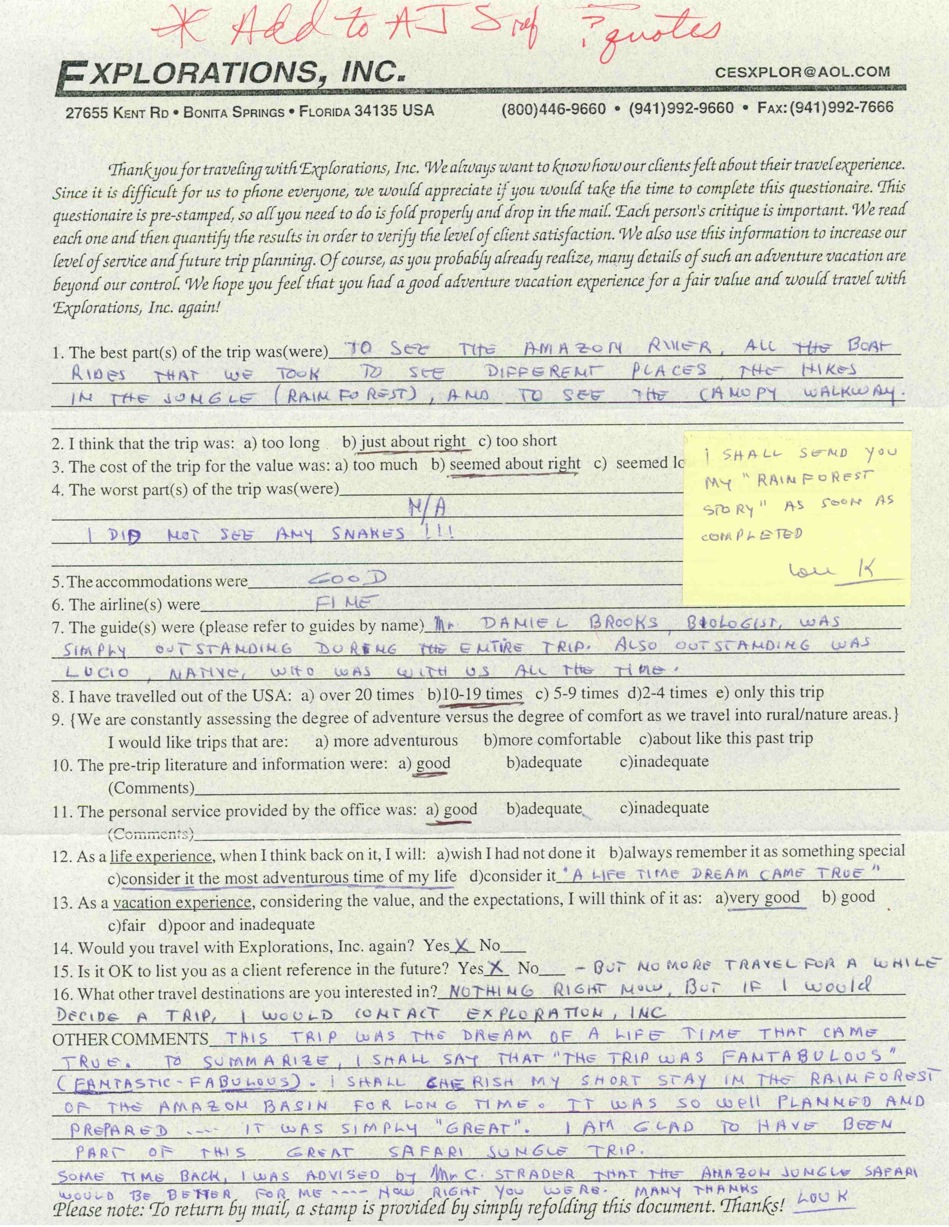 * Add to AJS ref ? quotes
EXPLORATIONS, INC.
CESXPLOR@AOL.COM
27655 KENT RD • BONITA SPRINGS • FLORIDA 34135 USA (800)446-9660 • (941)992-9660 • FAX:(941)992-7666
Thank you for traveling with Explorations, Inc. We always want to know how our clients felt about their travel experience.
Since it is difficult for us to phone everyone, we would appreciate if you would take the time to complete this questionaire. This
questionaire is pre-stamped, so all you need to do is fold properly and drop in the mail. Each person's critique is important. We read
each one and then quantify the results in order to verify the level of client satisfaction. We also use this information to increase our
level of service and future trip planning. Of course, as you probably already realize, many details of such an adventure vacation are
beyond our control. We hope you feel that you had a good adventure vacation experience for a fair value and would travel with
Explorations, Inc. again!
1. The best part(s) of the trip was(were) TO SEE THE AMAZON RIVER, ALL THE BOAT
RIDES THAT WE TOOK TO SEE DIFFERENT PLACES, THE HIKES
IN THE JUNGLE (RAIN FOREST), AND TO SEE THE CANOPY WALKWAY.
2. I think that the trip was: a) too long b) just about right c) too short
3. The cost of the trip for the value was: a) too much b) seemed about right c) seemed lo
4. The worst part(s) of the trip was(were)
N/A
I DID NOT SEE ANY SNAKES !!!
I SHALL SEND YOU
MY "RAINFOREST
STORY" AS SOON AS
COMPLETED
Lou K
5. The accommodations were GOOD
6. The airline(s) were FINE
7. The guide(s) were (please refer to guides by name) Mr. DANIEL BROOKS, BIOLOGIST, WAS
SIMPLY OUTSTANDING DURING THE ENTIRE TRIP. ALSO OUTSTANDING WAS
LUCIO, NATIVE, WHO WAS WITH US ALL THE TIME.
8. I have travelled out of the USA: a) over 20 times b)10-19 times c) 5-9 times d)2-4 times e) only this trip
9. {We are constantly assessing the degree of adventure versus the degree of comfort as we travel into rural/nature areas.}
I would like trips that are: a) more adventurous b)more comfortable c)about like this past trip
10. The pre-trip literature and information were: a) good b)adequate c)inadequate
(Comments)
11. The personal service provided by the office was: a) good b)adequate c)inadequate
(Comments)
12. As a life experience, when I think back on it, I will: a)wish I had not done it b)always remember it as something special
c)consider it the most adventurous time of my life d)consider it "A LIFE TIME DREAM CAME TRUE"
13. As a vacation experience, considering the value, and the expectations, I will think of it as: a)very good b) good
c)fair d)poor and inadequate
14. Would you travel with Explorations, Inc. again? Yes X No
15. Is it OK to list you as a client reference in the future? Yes X No - BUT NO MORE TRAVEL FOR A WHILE
16. What other travel destinations are you interested in? NOTHING RIGHT NOW, BUT IF I WOULD
DECIDE A TRIP, I WOULD CONTACT EXPLORATION, INC
OTHER COMMENTS THIS TRIP WAS THE DREAM OF A LIFE TIME THAT CAME
TRUE. TO SUMMARIZE, I SHALL SAY THAT "THE TRIP WAS FANTABULOUS"
(FANTASTIC-FABULOUS). I SHALL CHERISH MY SHORT STAY IN THE RAINFOREST
OF THE AMAZON BASIN FOR LONG TIME. IT WAS SO WELL PLANNED AND
PREPARED ---- IT WAS SIMPLY "GREAT". I AM GLAD TO HAVE BEEN
PART OF THIS GREAT SAFARI JUNGLE TRIP.
SOME TIME BACK, I WAS ADVISED by Mr C. STRADER THAT THE AMAZON JUNGLE SAFARI
WOULD BE BETTER FOR ME ---- HOW RIGHT YOU WERE. MANY THANKS
Please note: To return by mail, a stamp is provided by simply refolding this document. Thanks! LOU K